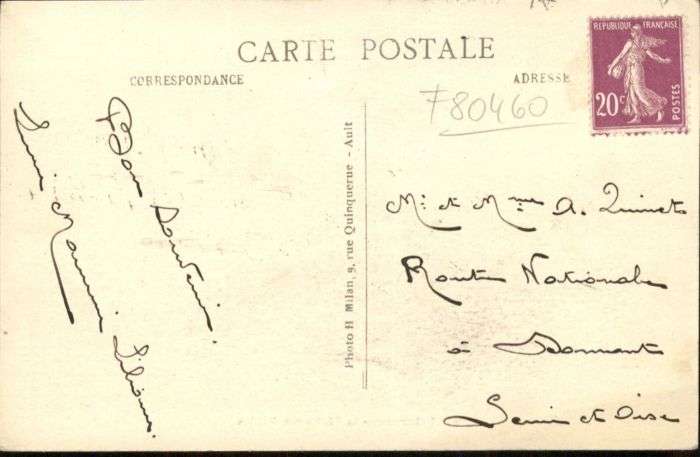 CARTE POSTALE
CORRESPONDANCE
ADRESSE
RÉPUBLIQUE FRANÇAISE
20c
POSTES
F80460
Bon Souvenir.
Mimi Liliane.
Photo H Milan, 9, rue Quinquerue - Ault
Mr et Mme A. Quinet
Route Nationale
à Bonnant
Seine et Oise